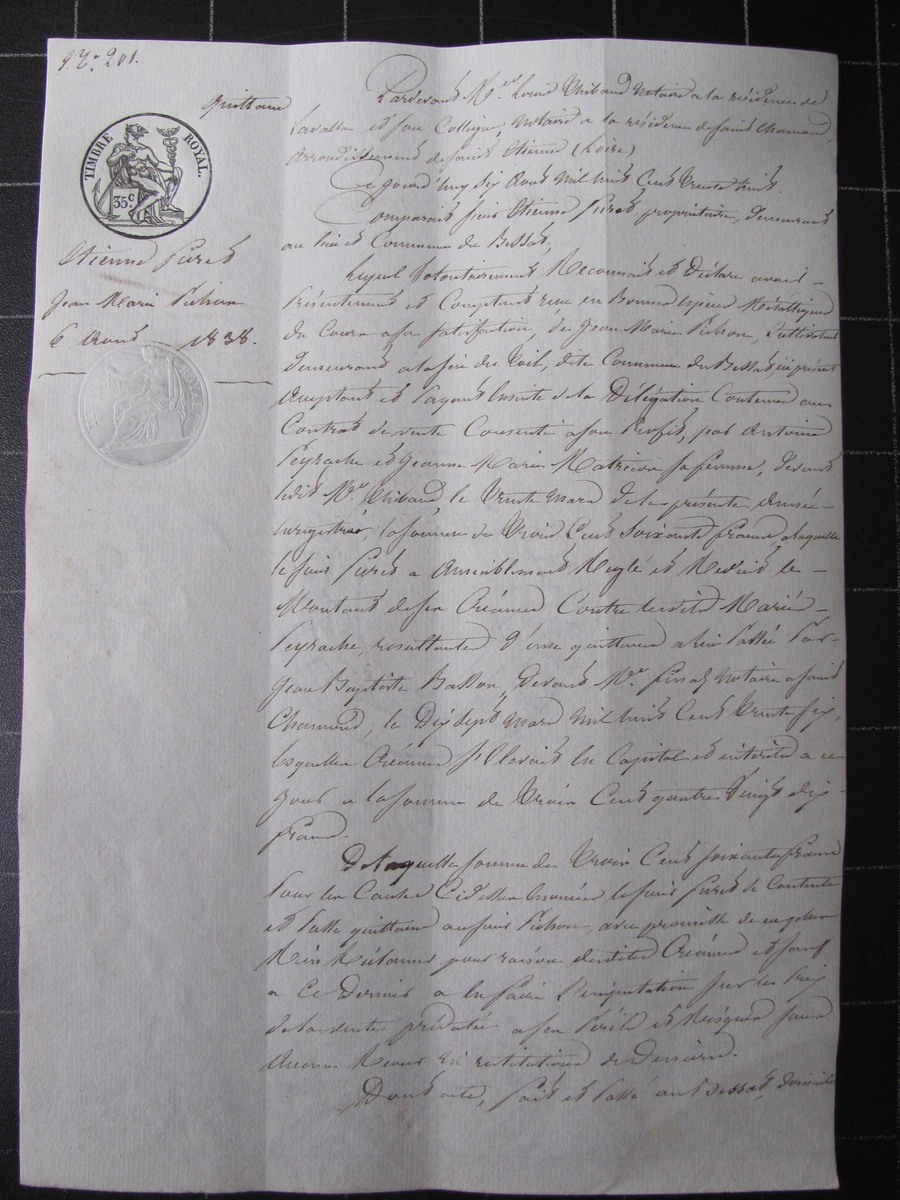 Quittance
TIMBRE ROYAL.
35.c
Etienne Furet
Jean Marie Pichon
6 Aout 1838.
Pardevant Me. Louis Thibaud Notaire a la résidence de
Lavalla et son Collègue, Notaire a la résidence de Saint Chamond,
Arrondissement de Saint Etienne (Loire)
Ce jourd'huy six Aout Mil huit Cent trente huit.
Comparait sieur Etienne Furet, propriétaire, demeurant
au lieu et Commune du Bessat,
Lequel Volontairement Reconnait et Déclare avoir
Présentement et Comptant reçu en Bonnes espèces Métalliques
du Cours a sa Satisfaction, de Jean Marie Pichon, Cultivateur
demeurant a dite Commune du Bessat, ici présent
Acceptant et Payant Ensuite de la Délégation Contenue au
Contrat de vente Consentie a son Profit, par Antoine
Peyrache et Jeanne Marie Matricon sa femme, devant
ledit Me. Thibaud, le trente Mars de la présente Année
enregistré, la somme de Trois Cent Soixante francs, a laquelle
le sieur Furet a Amiablement Réglé et Réduit le
Montant de sa Créance Contre lesdits Mariés
Peyrache, resultante d'une quittance a lui Passée Par
Jean Baptiste Basson, devant Me. Finaz Notaire a Saint
Chamond, le Dix Sept Mars Mil huit Cent trente six,
lesquelles Créances s'Elevait En Capital et intérêts a ce
jour a la somme de Trois Cent quatre Vingt dix
francs.
De laquelle somme de Trois Cent soixante francs
Pour les Causes Ci dessus Enoncées le sieur Furet se Contente
et Passe quittance au sieur Pichon, avec promesse de ne plus
Rien Réclamer pour raison desdites Créances et sauf
a Ce Dernier a En faire l'imputation sur les Prix
de la vente prédatée a ses Périls et Risques sans
Aucun Recours ni restitution de Deniers.
Dont acte, Fait et Passé au Bessat, domicile